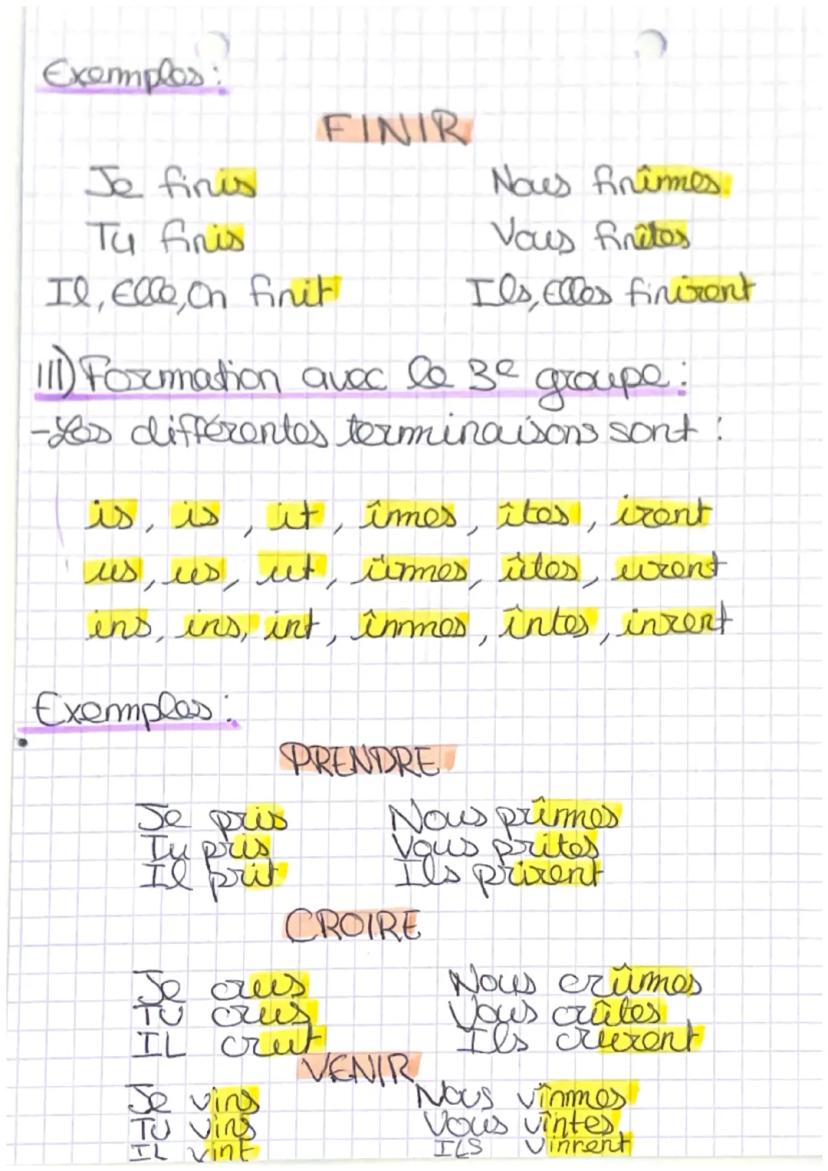 Exemples :
FINIR
Je finis Nous finîmes
Tu finis Vous finîtes
Il, Elle, On finit Ils, Elles finirent
III) Formation avec le 3e groupe :
-Les différentes terminaisons sont :
is, is, it, îmes, îtes, irent
us, us, ut, ûmes, ûtes, urent
ins, ins, int, înmes, întes, inrent
Exemples :
PRENDRE
Je pris Nous prîmes
Tu pris Vous prîtes
Il prit Ils prirent
CROIRE
Je crus Nous crûmes
TU crus Vous crûtes
IL crut Ils crurent
VENIR
Je vins Nous vînmes
TU vins Vous vîntes
IL vint ILS vinrent